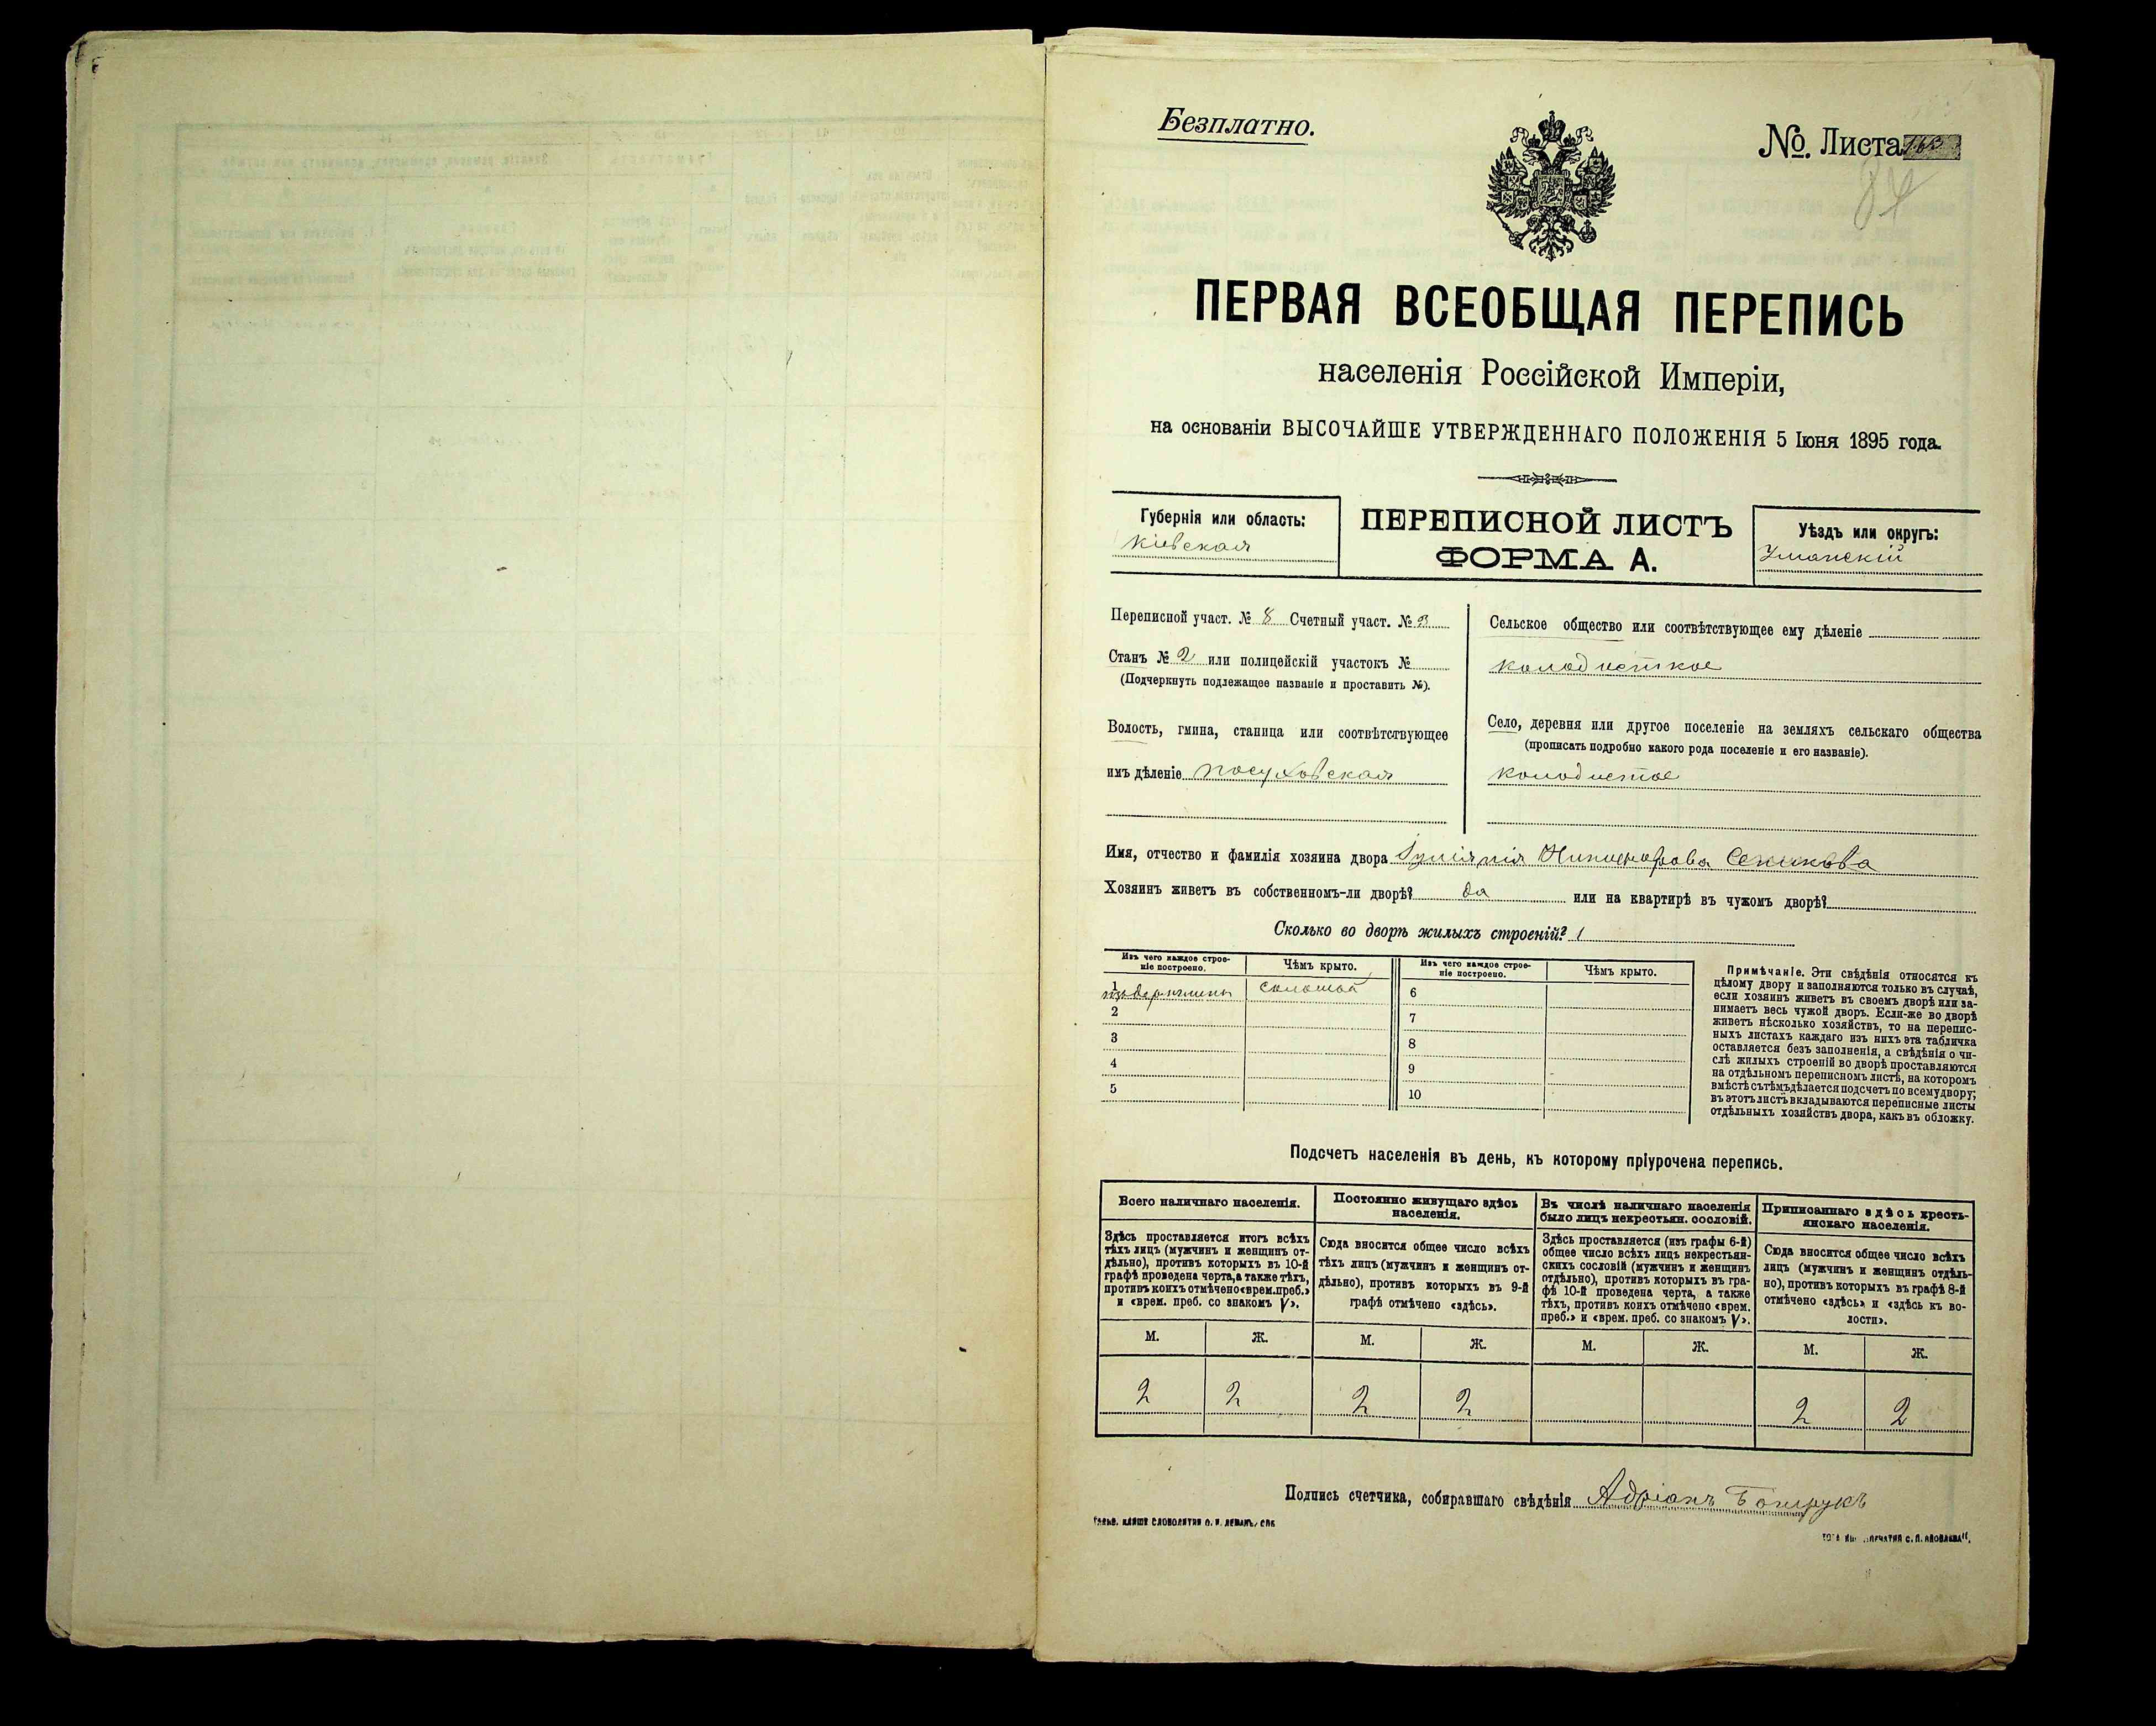 Безплатно.
№. Листа 163
84
ПЕРВАЯ ВСЕОБЩАЯ ПЕРЕПИСЬ
населенія Россійской Имперіи,
на основаніи ВЫСОЧАЙШЕ УТВЕРЖДЕННАГО ПОЛОЖЕНІЯ 5 Іюня 1895 года.
Губернія или область:
Кіевская
ПЕРЕПИСНОЙ ЛИСТЪ
ФОРМА А.
Уѣздъ или округъ:
Уманскій
Переписной участ. № 8 Счетный участ. № 3
Станъ № 2 или полицейскій участокъ №
(Подчеркнуть подлежащее названіе и проставить №).
Волость, гмина, станица или соотвѣтствующее
имъ дѣленіе Посуховская
Сельское общество или соотвѣтствующее ему дѣленіе
колодисткое
Село, деревня или другое поселеніе на земляхъ сельскаго общества
(прописать подробно какого рода поселеніе и его названіе).
колодистое
Имя, отчество и фамилія хозяина двора Никифорова
Хозяинъ живетъ въ собственномъ-ли дворѣ? да или на квартирѣ въ чужомъ дворѣ?
Сколько во дворѣ жилыхъ строеній? 1
Изъ чего каждое строе-
ніе построено.
Чѣмъ крыто.
Изъ чего каждое строе-
ніе построено.
Чѣмъ крыто.
1 соломой
6
2
7
3
8
4
9
5
10
Примѣчаніе. Эти свѣдѣнія относятся къ
цѣлому двору и заполняются только въ случаѣ,
если хозяинъ живетъ въ своемъ дворѣ или за-
нимаетъ весь чужой дворъ. Если-же во дворѣ
живетъ нѣсколько хозяйствъ, то на перепис-
ныхъ листахъ каждаго изъ нихъ эта табличка
оставляется безъ заполненія, а свѣдѣнія о чи-
слѣ жилыхъ строеній во дворѣ проставляются
на отдѣльномъ переписномъ листѣ, на которомъ
вмѣстѣ съ тѣмъ дѣлается подсчетъ по всему двору;
въ этотъ листъ вкладываются переписные листы
отдѣльныхъ хозяйствъ двора, какъ въ обложку.
Подсчетъ населенія въ день, къ которому пріурочена перепись.
Всего наличнаго населенія.
Здѣсь проставляется итогъ всѣхъ
тѣхъ лицъ (мужчинъ и женщинъ от-
дѣльно), противъ которыхъ въ 10-й
графѣ проведена черта, а также тѣхъ,
противъ коихъ отмѣчено «врем. преб.»
и «врем. преб. со знакомъ V».
Постоянно живущаго здѣсь
населенія.
Сюда вносится общее число всѣхъ
тѣхъ лицъ (мужчинъ и женщинъ от-
дѣльно), противъ которыхъ въ 9-й
графѣ отмѣчено «здѣсь».
Въ числѣ наличнаго населенія
было лицъ некрестьян. сословій.
Здѣсь проставляется (изъ графы 6-й)
общее число всѣхъ лицъ некрестьян-
скихъ сословій (мужчинъ и женщинъ
отдѣльно), противъ которыхъ въ гра-
фѣ 10-й проведена черта, а также
тѣхъ, противъ коихъ отмѣчено «врем.
преб.» и «врем. преб. со знакомъ V».
Приписаннаго здѣсь кресть-
янскаго населенія.
Сюда вносится общее число всѣхъ
лицъ (мужчинъ и женщинъ отдѣль-
но), противъ которыхъ въ графѣ 8-й
отмѣчено «здѣсь» и «здѣсь къ во-
лости».
М. Ж. М. Ж. М. Ж. М. Ж.
2 2 2 2 2 2
Подпись счетчика, собиравшаго свѣдѣнія Адріанъ